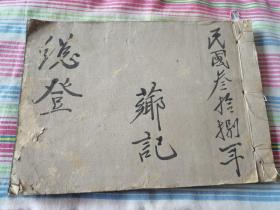 民國叁拾捌年
薌記
總登